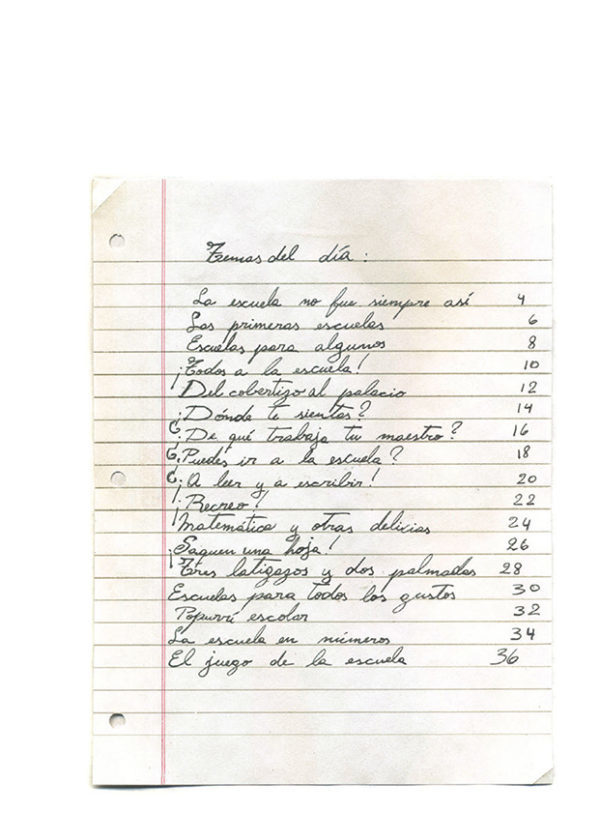 Temas del día:
La escuela no fue siempre así 4
Las primeras escuelas 6
Escuelas para algunos 8
¡Todos a la escuela! 10
Del cobertizo al palacio 12
¿Dónde te sientas? 14
¿De qué trabaja tu maestro? 16
¿Puedes ir a la escuela? 18
¡A leer y a escribir! 20
¡Recreo! 22
Matemática y otras delicias 24
¡Saquen una hoja! 26
Tres latigazos y dos palmadas 28
Escuelas para todos los gustos 30
Popurrí escolar 32
La escuela en números 34
El juego de la escuela 36